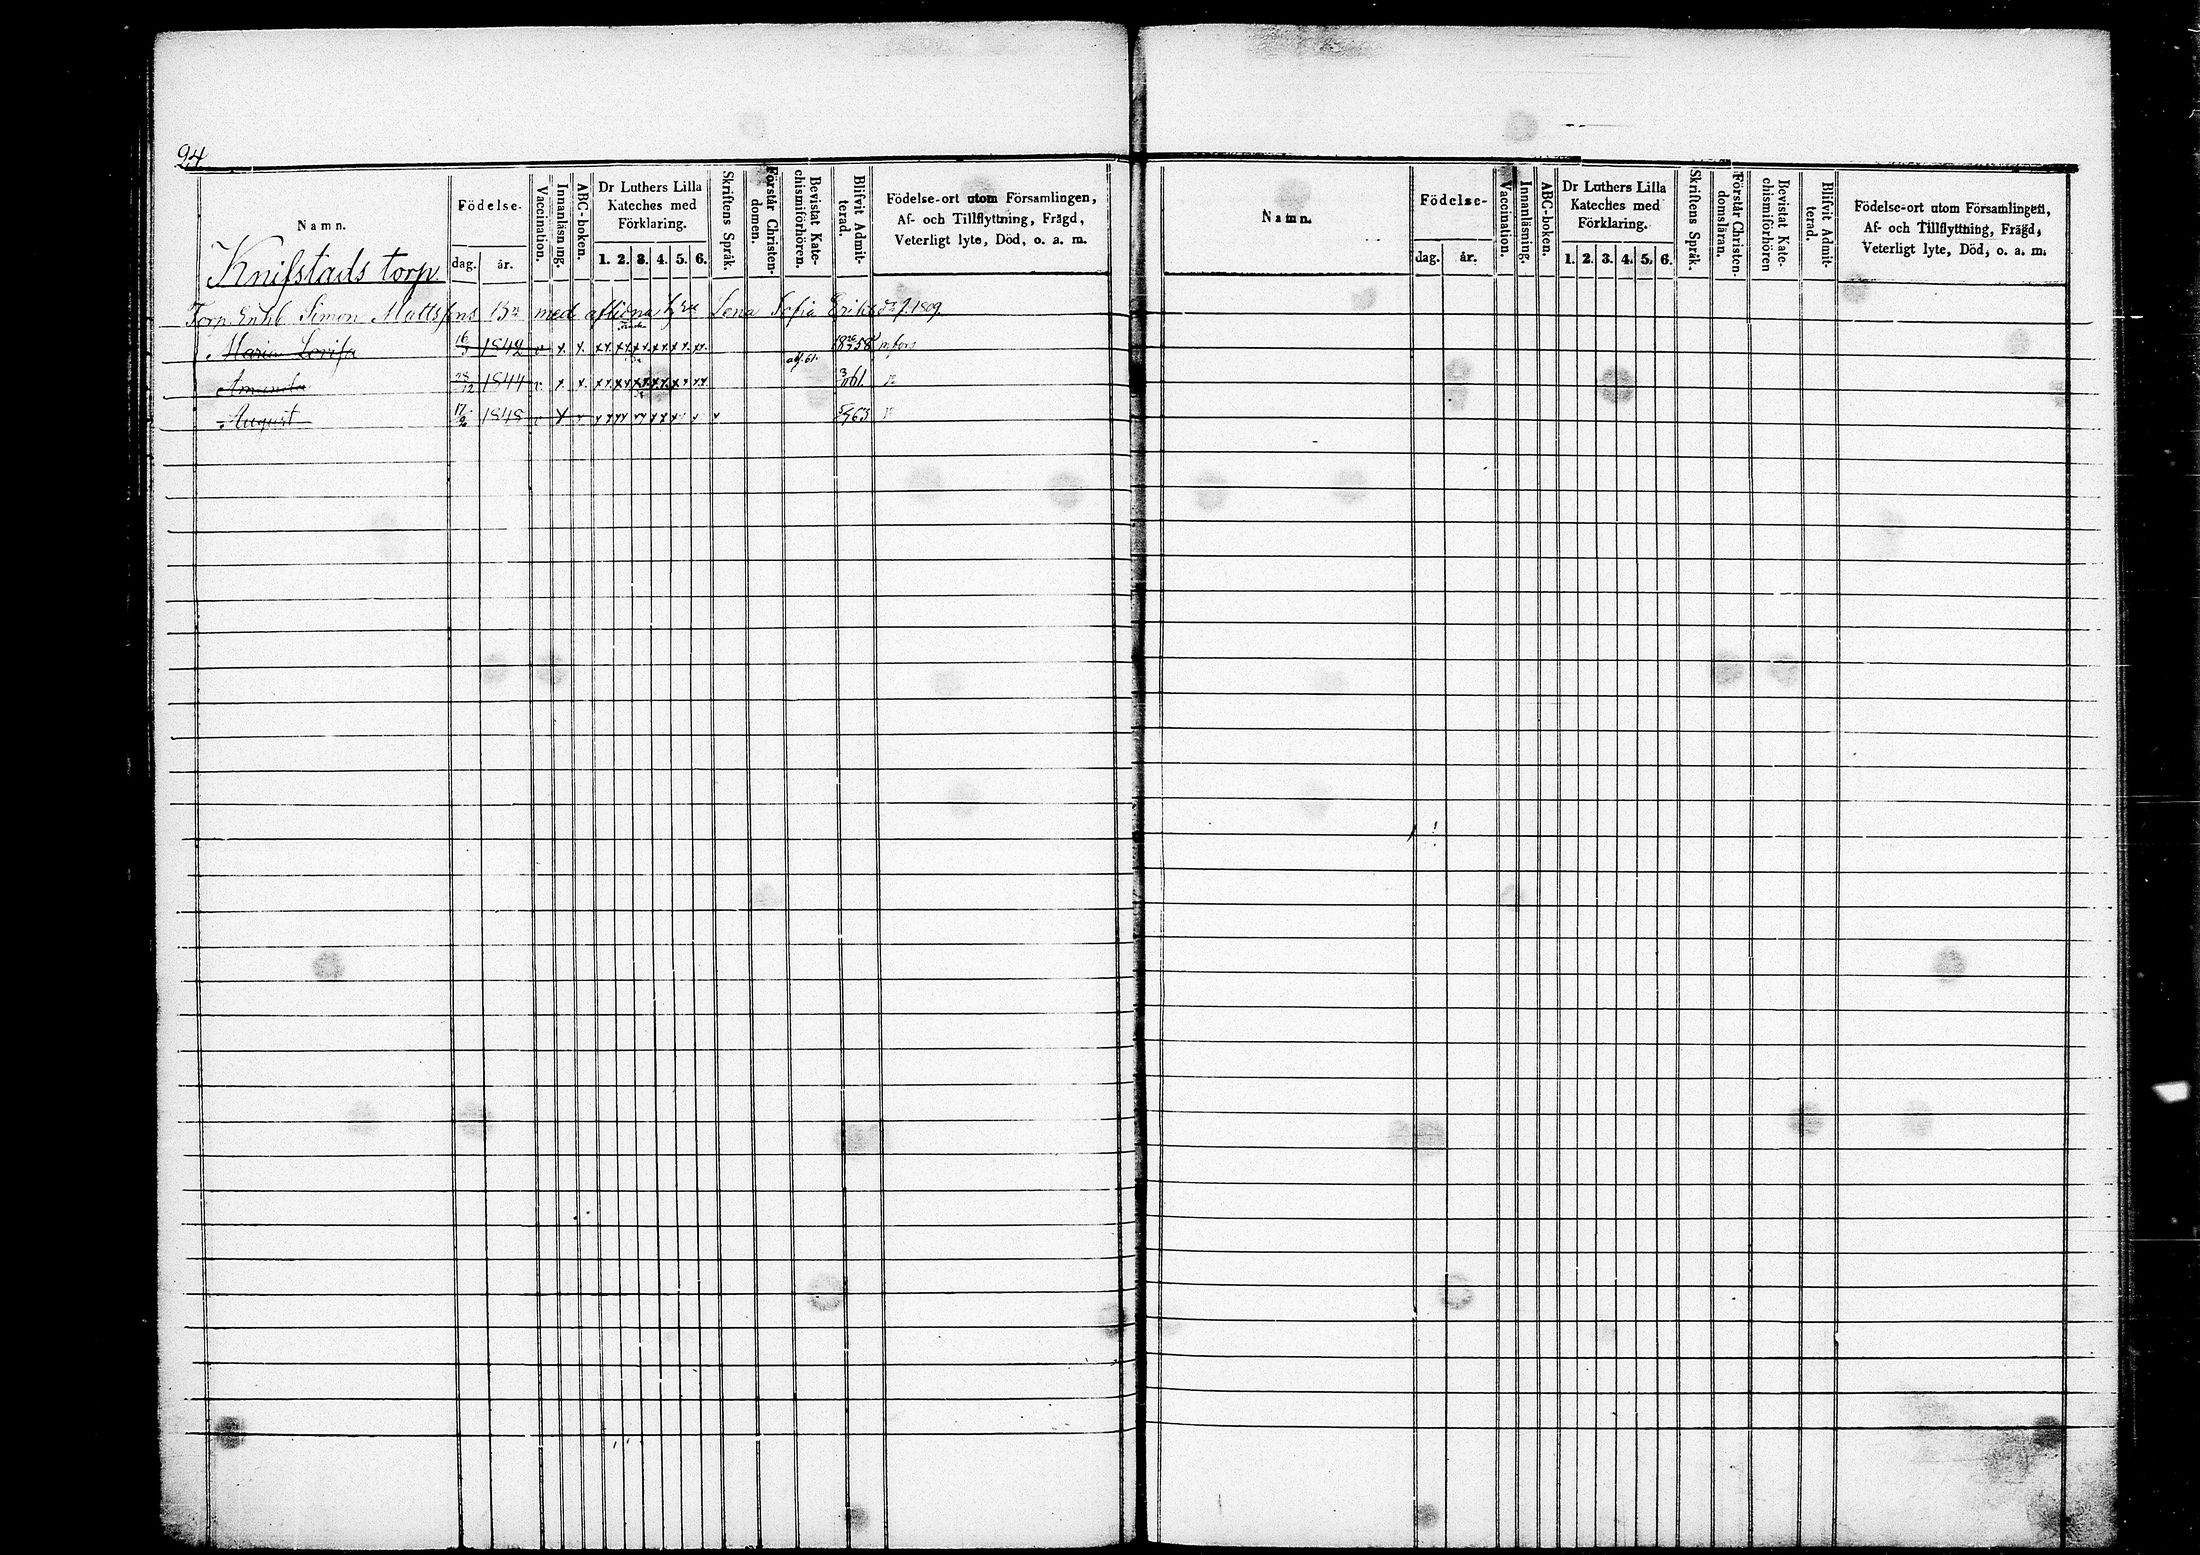 24
Namn. Födelse. Vaccination. Innanläsning. ABC-boken. Dr Luthers Lilla Kateches med Förklaring. Skriftens Språk. Förstår Christen-domen. Bevistat Kate-chismiförhören. Blifvit Admit-terad. Födelse-ort utom Församlingen, Af- och Tillflyttning, Frägd, Veterligt lyte, Död, o. a. m.
dag. år. 1. 2. 3. 4. 5. 6.
Knifstads torp
Torp. Enkl. Simon Mattsons Bn med aflidna h. Lena Sofia f. 1809.
Maria Lovisa 16 1842 v x x 58
Amanda 28/12 1844 v x x adj. 61. 61.
August 17/2 1848 v x v 63
Namn. Födelse- Vaccination. Innanläsning. ABC-boken. Dr Luthers Lilla Kateches med Förklaring. Skriftens Språk. Förstår Christen-domsläran. Bevistat Kate-chismiförhören Blifvit Admit-terad. Födelse-ort utom Församlingen, Af- och Tillflyttning, Frägd, Veterligt lyte, Död, o. a. m.
dag. år. 1. 2. 3. 4. 5. 6.